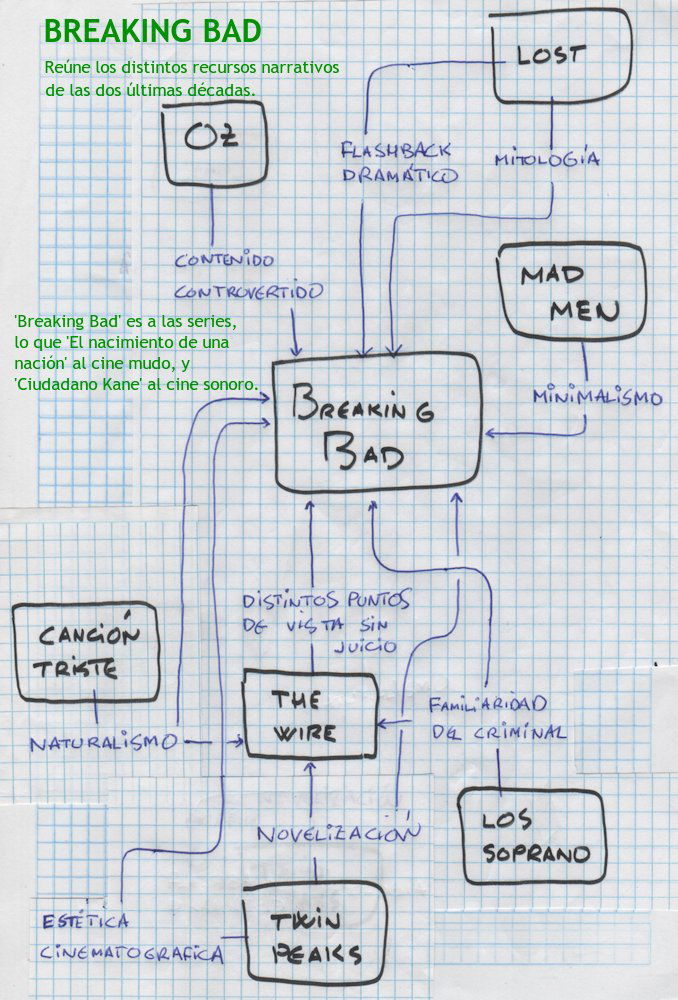 BREAKING BAD
Reúne los distintos recursos narrativos
de las dos últimas décadas.
LOST
OZ
FLASHBACK
DRAMÁTICO
MITOLOGÍA
CONTENIDO
CONTROVERTIDO
MAD
MEN
'Breaking Bad' es a las series,
lo que 'El nacimiento de una
nación' al cine mudo, y
'Ciudadano Kane' al cine sonoro.
BREAKING
BAD
MINIMALISMO
DISTINTOS PUNTOS
DE VISTA SIN
JUICIO
CANCIÓN
TRISTE
THE
WIRE
FAMILIARIDAD
DEL CRIMINAL
NATURALISMO
LOS
SOPRANO
NOVELIZACIÓN
ESTÉTICA
CINEMATOGRAFICA
TWIN
PEAKS